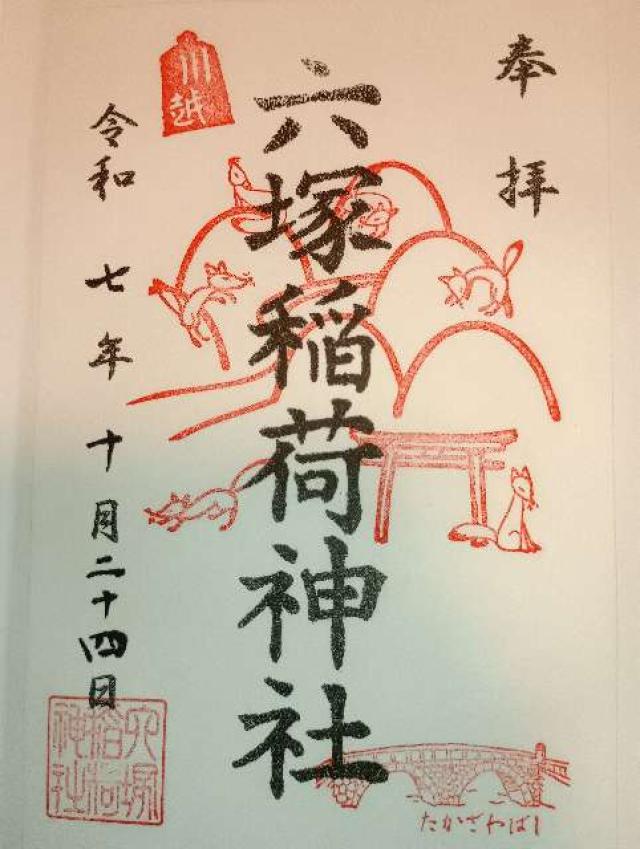 奉拝
川越
六塚稲荷神社
令和七年十月二十四日
六塚
稲荷
神社
たかざわばし